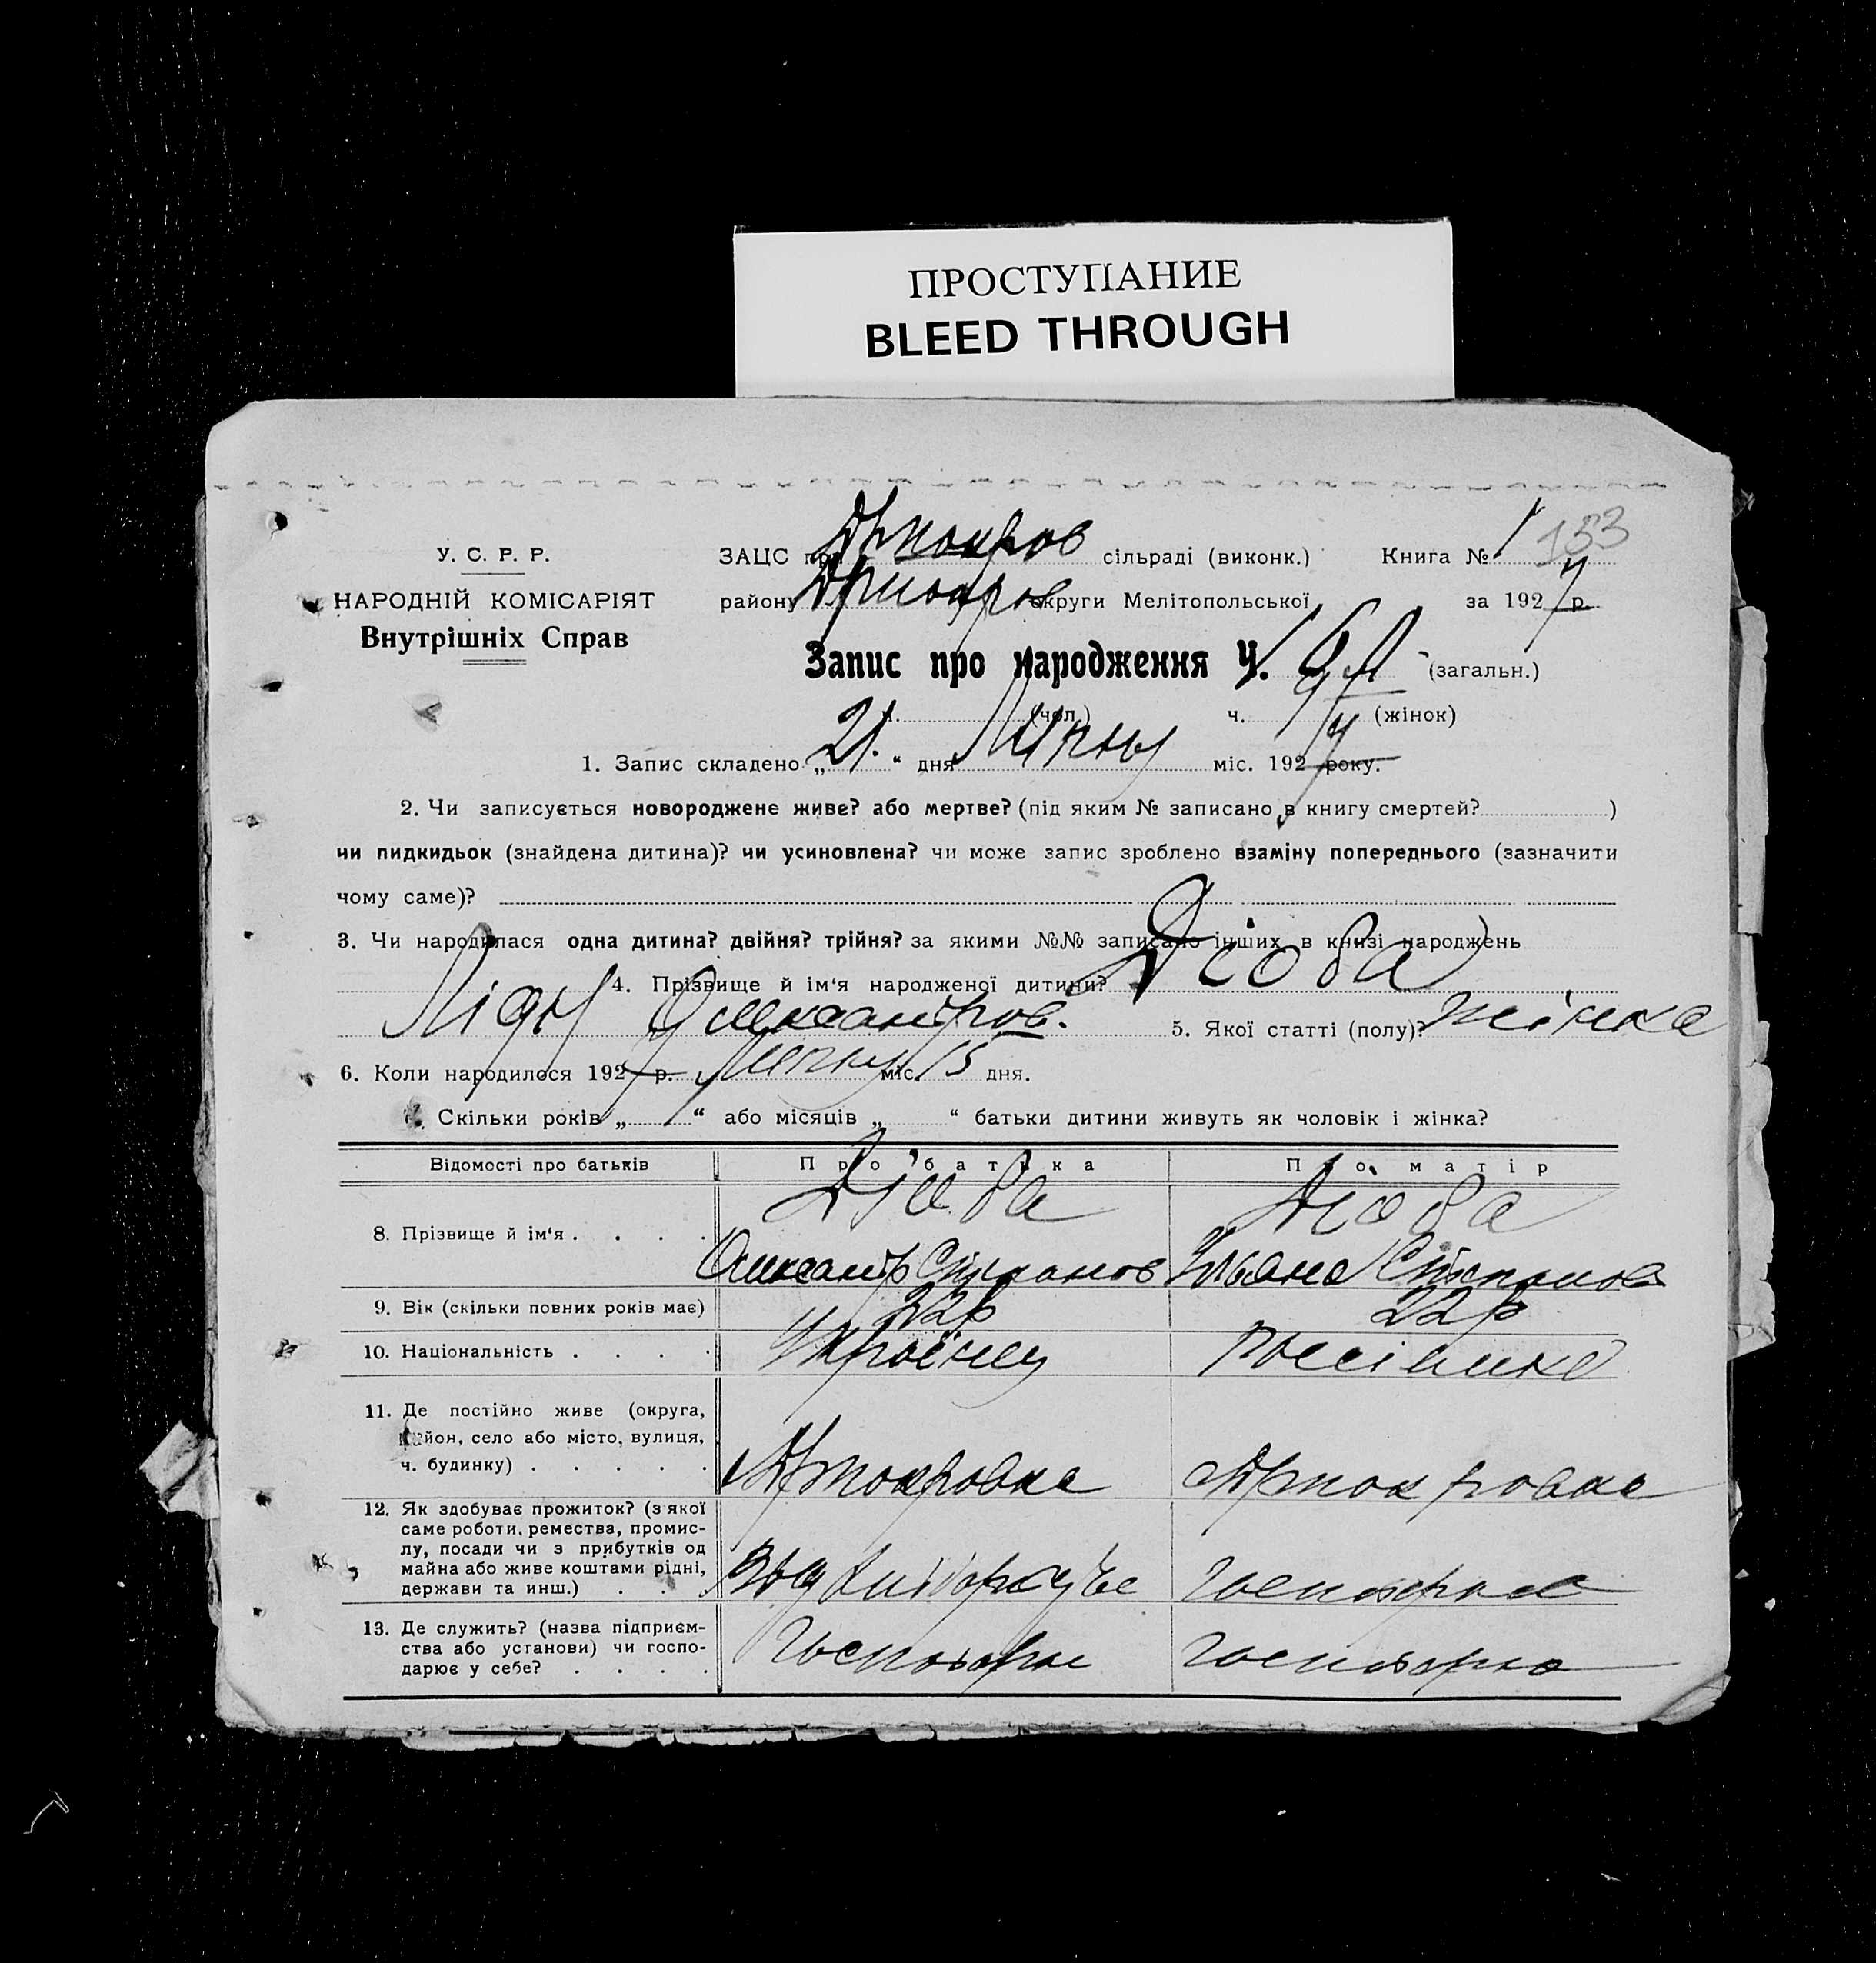 ПРОСТУПАНИЕ
BLEED THROUGH
У. С. Р. Р.
НАРОДНІЙ КОМІСАРІЯТ
Внутрішніх Справ
ЗАЦС при сільраді (виконк.) Книга № 1 153
району округи Мелітопольської за 1927 р.
Запис про народження Ч. (загальн.)
ч. (чол.) ч. (жінок)
1. Запис складено „21.“ дня Липню міс. 1927 року.
2. Чи записується новороджене живе? або мертве? (під яким № записано в книгу смертей? )
чи пидкидьок (знайдена дитина)? чи усиновлена? чи може запис зроблено взаміну попереднього (зазначити
чому саме)?
3. Чи народилася одна дитина? двійня? трійня? за якими №№ записано інших в книзі народжень
4. Прізвище й ім‘я народженої дитини? Дзюба
Лідія Олександров. 5. Якої статті (полу)? жінка
6. Коли народилося 1927 р. Липню міс. 15 дня.
7. Скільки років „ “ або місяців „ “ батьки дитини живуть як чоловік і жінка?
Відомості про батьків Про батька Про матір
8. Прізвище й ім‘я . . . . Дзюба Дзюба
Олександр Степанов Уляна Степанова
9. Вік (скільки повних років має) 22р 22р
10. Національність . . . . Українец
11. Де постійно живе (округа,
район, село або місто, вулиця,
ч. будинку) . . . . .
12. Як здобуває прожиток? (з якої
саме роботи, ремества, промис-
лу, посади чи з прибутків од
майна або живе коштами рідні,
держави та инш.) . . .
13. Де служить? (назва підприєм-
ства або установи) чи госпо-
дарює у себе? . . . .